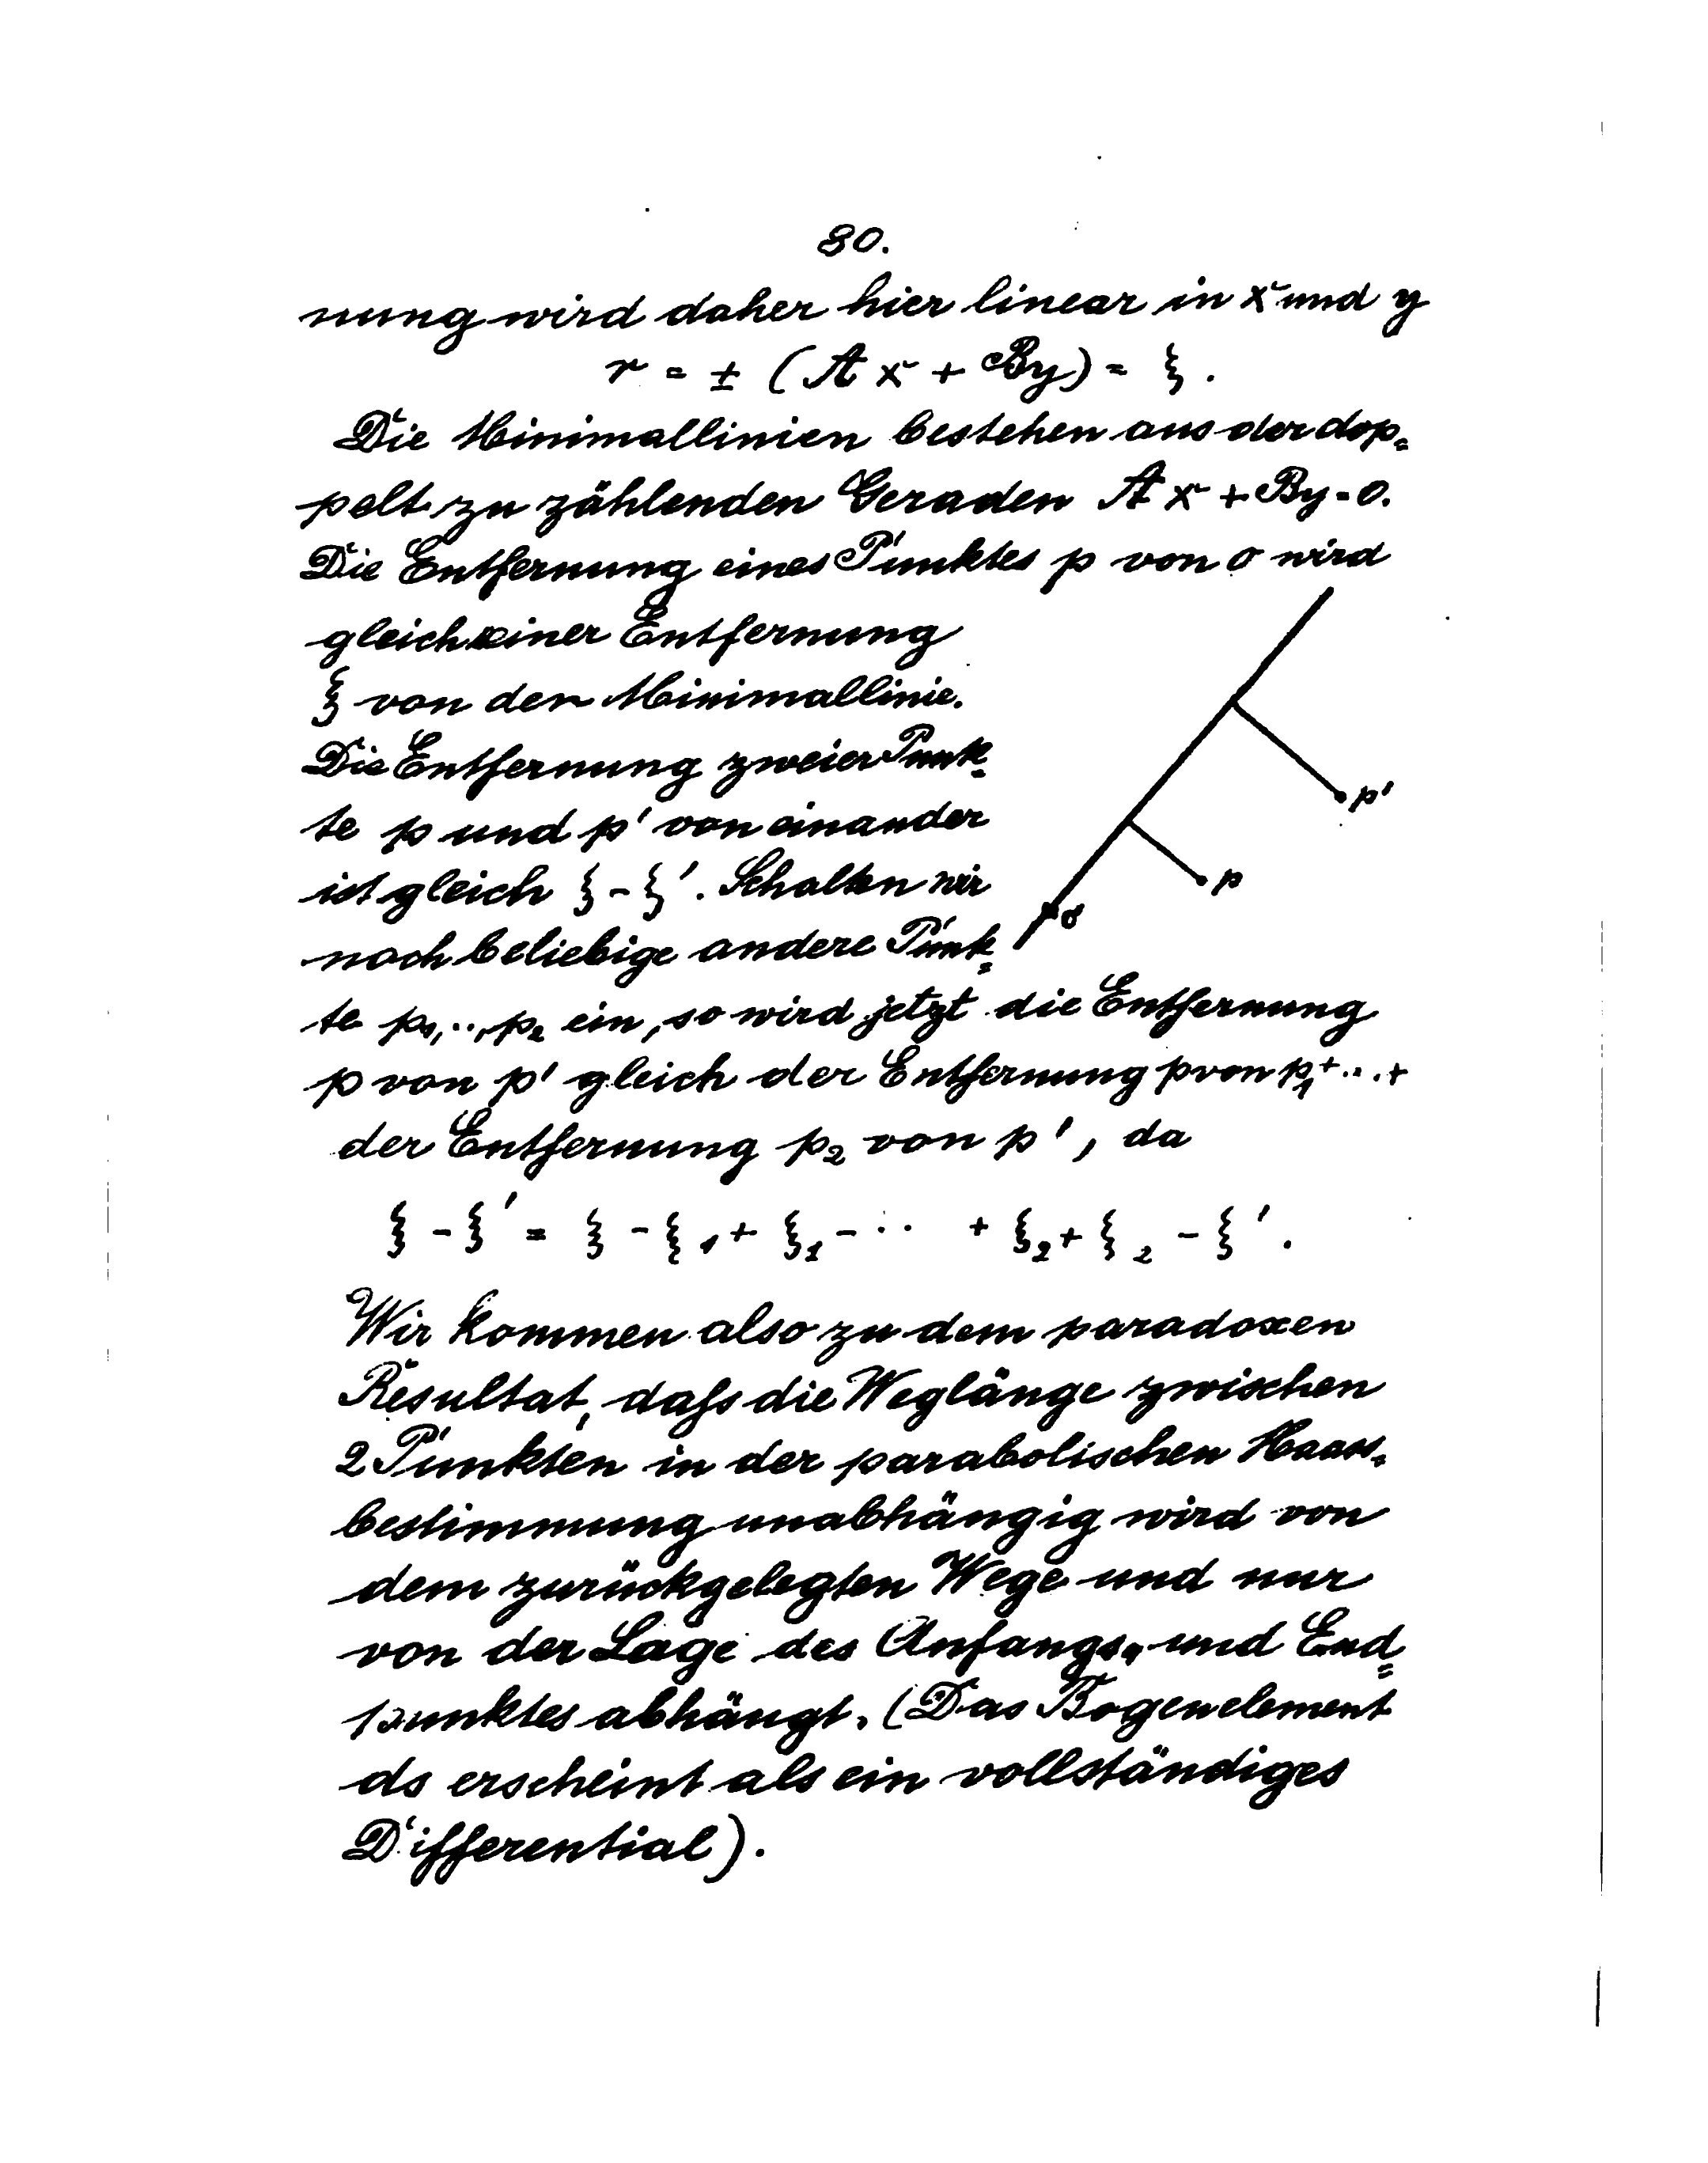 80.
nung wird daher hier linear in x und y
r = ± (Ax + By) = ξ.
Die Minimallinien bestehen aus der dop=
pelt zu zählenden Geraden Ax + By = 0.
Die Entfernung eines Punktes p von o wird
gleich einer Entfernung
ξ von der Minimallinie.
Die Entfernung zweier Punk=
te p und p' von einander
ist gleich ξ - ξ'. Schalten wir
noch beliebige andere Punk=
te p₁, .., p₂ ein, so wird jetzt die Entfernung
p von p' gleich der Entfernung p von p₁ + ... +
der Entfernung p₂ von p', da
ξ - ξ' = ξ - ξ₁ + ξ₁ - ·· + ξ₂ + ξ₂ - ξ'.
Wir kommen also zu dem paradoxen
Resultat, daſs die Weglänge zwischen
2 Punkten in der parabolischen Maass=
bestimmung unabhängig wird von
dem zurückgelegten Wege und nur
von der Lage des Anfangs= und End=
punktes abhängt. (Das Bogenelement
ds erscheint als ein vollständiges
Differential).
p'
p
o